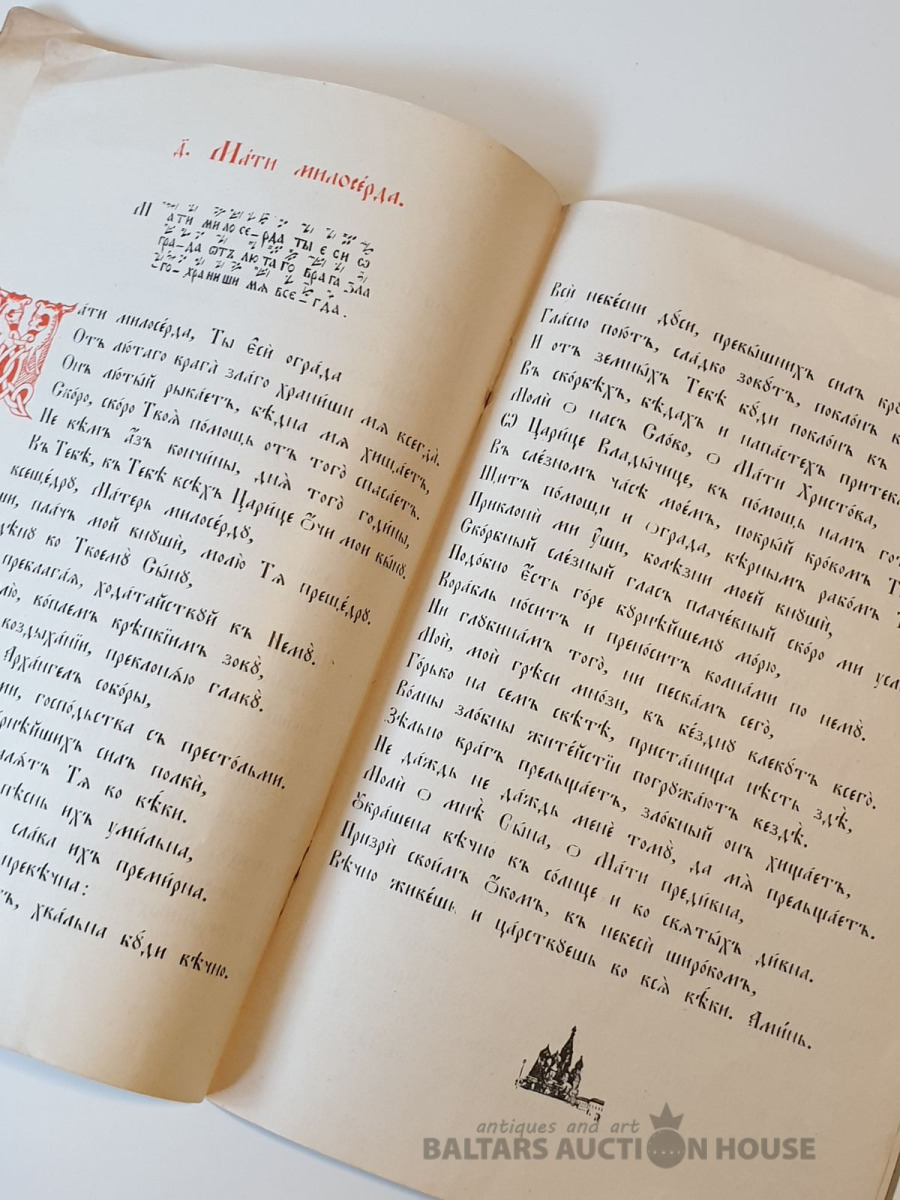 д҃. Ма́ти милосе́рда.
М
АТИ МИЛОСЕ–РДА ТЫ ЕСИ Ѡ
ГРА–ДА ѾТЪ ЛЮТАГО ВРАГА ЗЛА
–ГО–ХРАНИШИ МЯ ВСЕ–ГДА.
Ма́ти милосе́рда, Ты є҆сѝ огра́да
Отъ лю́таго врага̀ зла́го храни́ши мя всегда̀.
Онъ лю́тый рыка́етъ, бѣ́дна мя̀ хища́етъ,
Ско́ро, ско́ро Твоя̀ по́мощь отъ того̀ спаса́етъ.
Не вѣ́мъ а҆́зъ кончи́ны, дня̀ того̀ годи́ны,
Къ Тебѣ̀, къ Тебѣ̀ всѣ́хъ Цари́це ѻ҆́чи мои вы́нꙋ.
всеще́дрꙋ, Ма́терь милосе́рдꙋ,
пла́чъ мой внꙋшѝ, молю̀ Тя̀ преще́дрꙋ.
ко Твоемꙋ̀ Сы́нꙋ,
преклага́я, хода́тайствꙋй къ Немꙋ̀.
во́племъ крѣ́пкіимъ зовꙋ̀,
воздыха́ніи, преклоня́ю главꙋ̀.
Арха́нгелъ собо́ры,
госпо́дьства съ престо́льми.
си́лъ полкѝ,
Тя̀ во вѣ́ки.
пѣ́снь ихъ уми́льна,
сла́ва ихъ преми́рна.
превѣ́чна:
хва́льна бꙋ́ди вѣ́чно.
Всѝ небе́сни дꙋ́си, превы́шнихъ силъ
Гла́сно пою́тъ, сла́дко зовꙋ́тъ, покло́нъ
И отъ земны́хъ Тебѣ̀ бꙋ́ди покло́нъ въ
Въ ско́рбѣхъ, бѣ́дахъ и напа́стехъ
Молѝ ѻ насъ Сло́во, ѻ Ма́ти Христо́ва,
Ѽ Цари́це Влады́чице, къ по́мощь намъ
Въ сле́зномъ часѣ̀ мое́мъ, покры́й кро́вомъ
Щитъ по́мощи и ѻгра́да, вѣ́рнымъ рабо́мъ
Приклонѝ ми ᲂу҆́ши, болѣ́зни моей внꙋшѝ,
Ско́рбный сле́зный гласъ плаче́вный ско́ро ми
Подо́бно є҆́сть го́ре бꙋрнѣ́йшемꙋ мо́рю,
Кора́бль но́ситъ и прено́ситъ волна́ми по немꙋ̀.
Ни глꙋбина́мъ того̀, ни песка́мъ сего̀,
Мой, мой грѣ́си мно́зи, въ бе́зднꙋ влекꙋ́тъ всего̀.
Го́рько на семъ свѣ́тѣ, приста́нища нѣ́сть здѣ̀,
Во́лны зло́бны жите́йстіи погрꙋжа́ютъ вездѣ̀.
Зѣ́льно врагъ прельща́етъ, зло́бный онъ хища́етъ,
Не да́ждь не да́ждь менѐ томꙋ̀, да мя̀ прельща́етъ.
Молѝ ѻ мнѣ̀ Сы́на, ѻ Ма́ти преди́вна,
Ꙋкра́шена вѣ́чно въ со́лнце и во святы́хъ ди́вна.
Призрѝ свои́мъ ѻ҆́комъ, въ небесѝ широ́комъ,
Вѣ́чно живе́шь и ца́рствꙋешь во вся̀ вѣ́ки. Ами́нь.
antiques and art
BALTARS AUCTION HOUSE